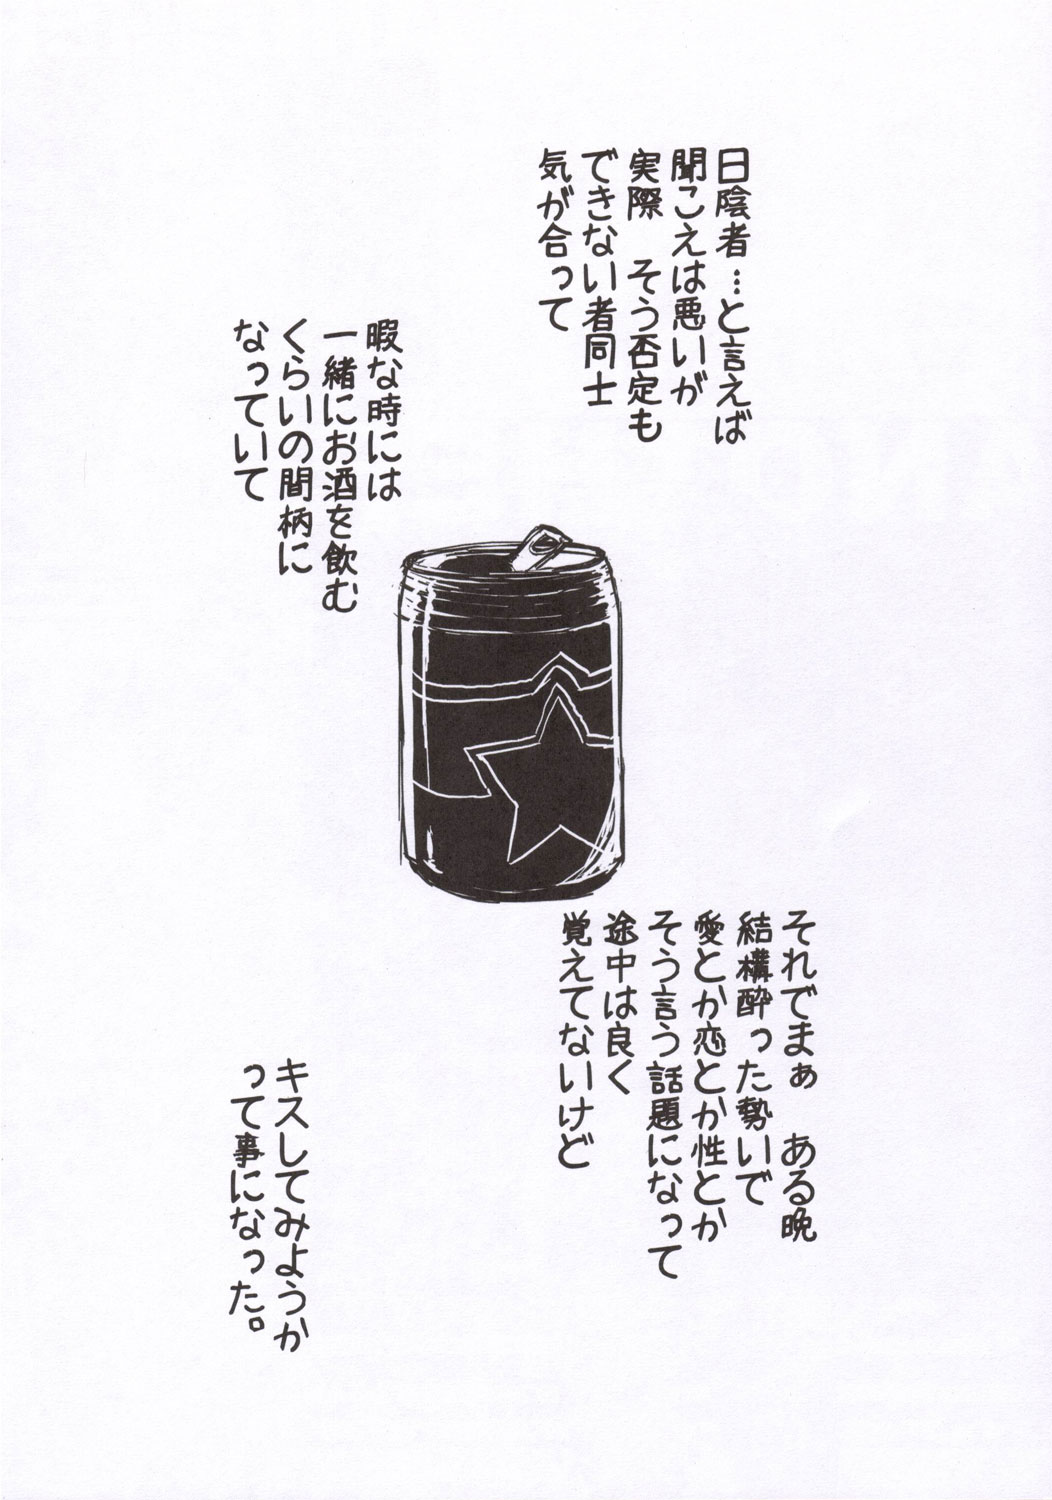 日陰者…と言えば
聞こえは悪いが
実際　そう否定も
できない者同士
気が合って
暇な時には
一緒にお酒を飲む
くらいの間柄に
なっていて
それでまぁ　ある晩
結構酔った勢いで
愛とか恋とか性とか
そう言う話題になって
途中は良く
覚えてないけど
キスしてみようか
って事になった。